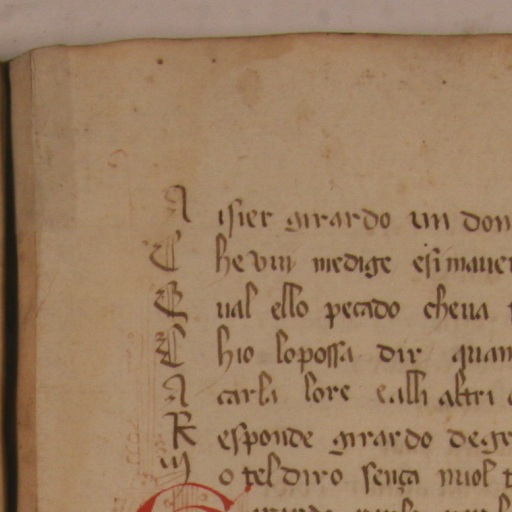 A isier girardo un don
C he vui medige esimauer
Q ual ello pecado cheua
C hio lopossa dir quan
A carla lore ealli altri
R esponde girardo degr
M o tel diro sença mol